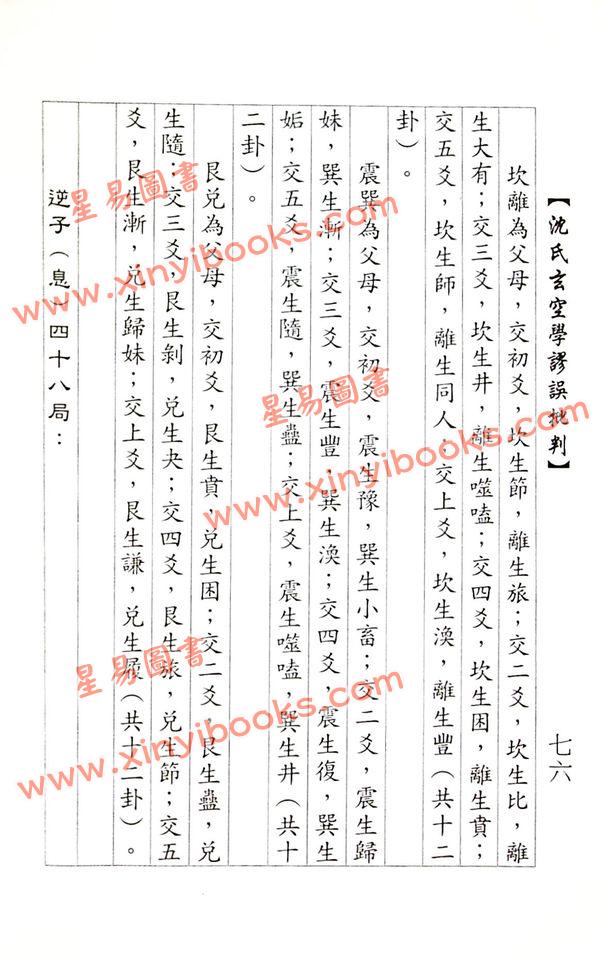 【沈氏玄空學謬誤批判】
七六
坎離為父母，交初爻，坎生節，離生旅；交二爻，坎生比，離
生大有；交三爻，坎生井，離生噬嗑；交四爻，坎生困，離生賁；
交五爻，坎生師，離生同人；交上爻，坎生渙，離生豐（共十二
卦）。
震巽為父母，交初爻，震生豫，巽生小畜；交二爻，震生歸
妹，巽生漸；交三爻，震生豐，巽生渙；交四爻，震生復，巽生
姤；交五爻，震生隨，巽生蠱；交上爻，震生噬嗑，巽生井（共十
二卦）。
艮兌為父母，交初爻，艮生賁，兌生困；交二爻，艮生蠱，兌
生隨；交三爻，艮生剝，兌生夬；交四爻，艮生旅，兌生節；交五
爻，艮生漸，兌生歸妹；交上爻，艮生謙，兌生履（共十二卦）。
逆子（息）四十八局：
星易圖書
www.xinyibooks.com
星易圖書
www.xinyibooks.com
星易圖書
www.xinyibooks.com